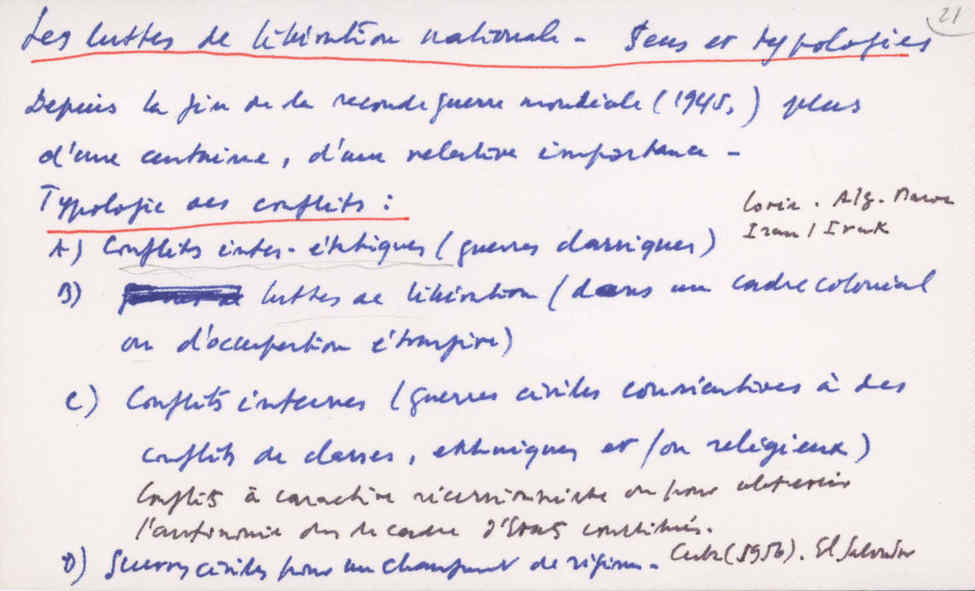 21
Les luttes de libération nationale - Sens et typologies
Depuis la fin de la seconde guerre mondiale (1945,) plus
d'une centaine, d'une relative importance -
Typologie des conflits :
Corée . Alg. Maroc
Iran / Irak
A) Conflits inter-étatiques (guerres classiques)
B) luttes de libération (dans un cadre colonial
ou d'occupation étrangère)
C) Conflits internes (guerres civiles consécutives à des
conflits de classes, ethniques et/ou religieux)
Conflits à caractère sécessionniste ou pour obtenir
l'autonomie dans le cadre d'Etats constitués.
D) Guerres civiles pour un changement de régime - Cuba (1956). El Salvador